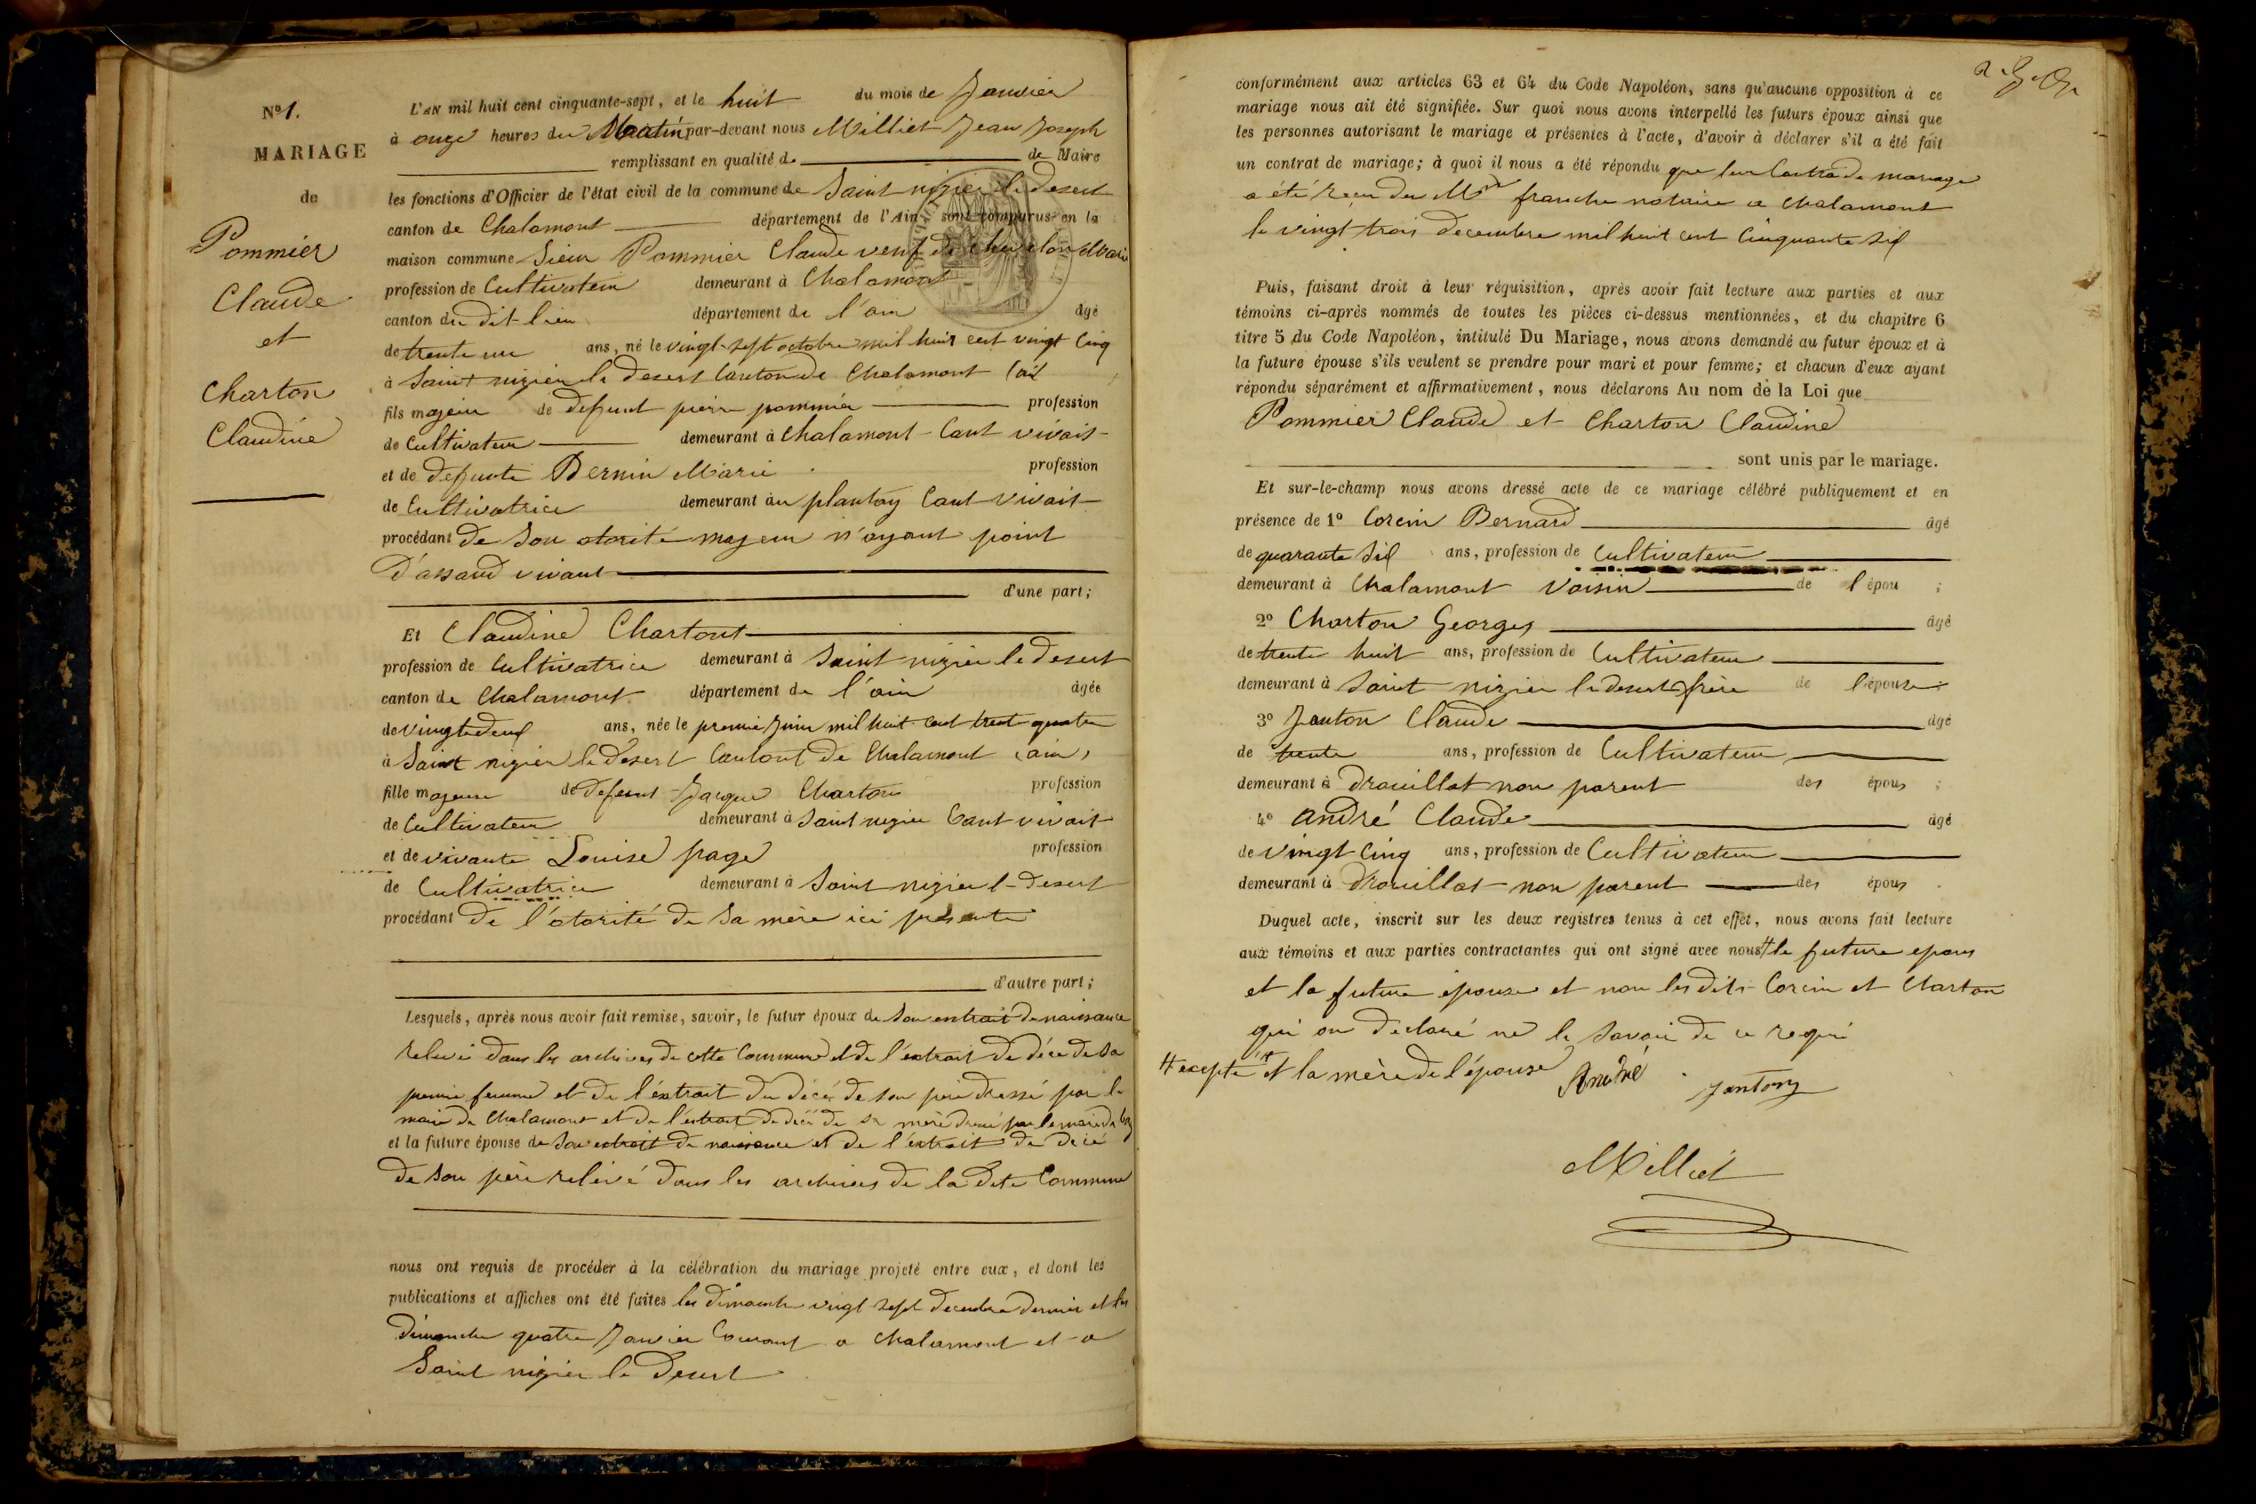 N° 1.
MARIAGE
de
Pommier
Claude
et
Charton
Claudine
L'AN mil huit cent cinquante-sept, et le huit du mois de Janvier
à onze heures du Matin par-devant nous Milliet Jean Joseph
remplissant en qualité de de Maire
les fonctions d'Officier de l'état civil de la commune de Saint nizier le desert
canton de Chalamont département de l'Ain, sont comparus en la
maison commune Sieur Pommier Claude veuf de Marie
profession de Cultivateur demeurant à Chalamont
canton du dit lieu département de l'ain âgé
de trente un ans, né le vingt sept octobre mil huit cent vingt cinq
à Saint nizier le desert Canton de Chalamont (ain
fils majeur de defunt pierre pommier profession
de Cultivateur demeurant à Chalamont Cant vivait
et de defunte Bernin Marie profession
de Cultivatrice demeurant au plantay Cant vivait
procédant de son otorité majeur n'ayant point
D'assand vivant
d'une part;
Et Claudine Chartont
profession de Cultivatrice demeurant à Saint nizier le desert
canton de Chalamont département de l'ain âgée
de vingt deux ans, née le premier Juin mil huit cent trent quatre
à Saint nizier le desert Cantont de Chalamont (ain)
fille majeure de defeunt Jacque Charton profession
de Cultivateur demeurant à Saint nizier Cant vivait
et de vivante Louise page profession
de Cultivatrice demeurant à Saint nizier l Desert
procédant de l'otorité de sa mère ici presente
d'autre part;
Lesquels, après nous avoir fait remise, savoir, le futur époux de son extrait de naissance
relevé dans les archives de cette Commune et de l'extrait de décé de sa
premie femme et de l'extrait du décés de son père dressé par le
maire de Chalamont et de l'extrait de décé de sa mère dressé par le maire de
et la future épouse de son extrait de naissance et de l'extrait de décé
de son père relevé dans les archives de la dite Commune
nous ont requis de procéder à la célébration du mariage projeté entre eux, et dont les
publications et affiches ont été faites les dimanche vingt sept decembre dernier et les
dimanche quatre Janvier Courant a Chalamont et a
Saint nizier le Desert
conformément aux articles 63 et 64 du Code Napoléon, sans qu'aucune opposition à ce
mariage nous ait été signifiée. Sur quoi nous avons interpellé les futurs époux ainsi que
les personnes autorisant le mariage et présentes à l'acte, d'avoir à déclarer s'il a été fait
un contrat de mariage; à quoi il nous a été répondu que leur Contra de mariage
a été reçu de Me franche notaire a Chalamont
le vingt trois decembre mil huit cent Cinquante six
Puis, faisant droit à leur réquisition, après avoir fait lecture aux parties et aux
témoins ci-après nommés de toutes les pièces ci-dessus mentionnées, et du chapitre 6
titre 5 du Code Napoléon, intitulé Du Mariage, nous avons demandé au futur époux et à
la future épouse s'ils veulent se prendre pour mari et pour femme; et chacun d'eux ayant
répondu séparément et affirmativement, nous déclarons Au nom de la Loi que
Pommier Claude et Charton Claudine
sont unis par le mariage.
Et sur-le-champ nous avons dressé acte de ce mariage célébré publiquement et en
présence de 1° Corcin Bernard âgé
de quarante six ans, profession de Cultivateur
demeurant à Chalamont Voisin de l'épou ;
2° Charton Georges âgé
de trente huit ans, profession de Cultivateur
demeurant à Saint nizier le desert frère de l'épouse
3° Janton Claude âgé
de trente ans, profession de Cultivateur
demeurant à Drouillat non parent des épous ;
4° André Claude âgé
de vingt cinq ans, profession de Cultivateur
demeurant à Drouillat non parent des épous
Duquel acte, inscrit sur les deux registres tenus à cet effet, nous avons fait lecture
aux témoins et aux parties contractantes qui ont signé avec nous # le future epous
et la future épouse et non les dits Corcin et Charton
qui on déclaré ne le savoir de ce requi
# excepté et la mère de l'épouse
André Jantony
Milliet